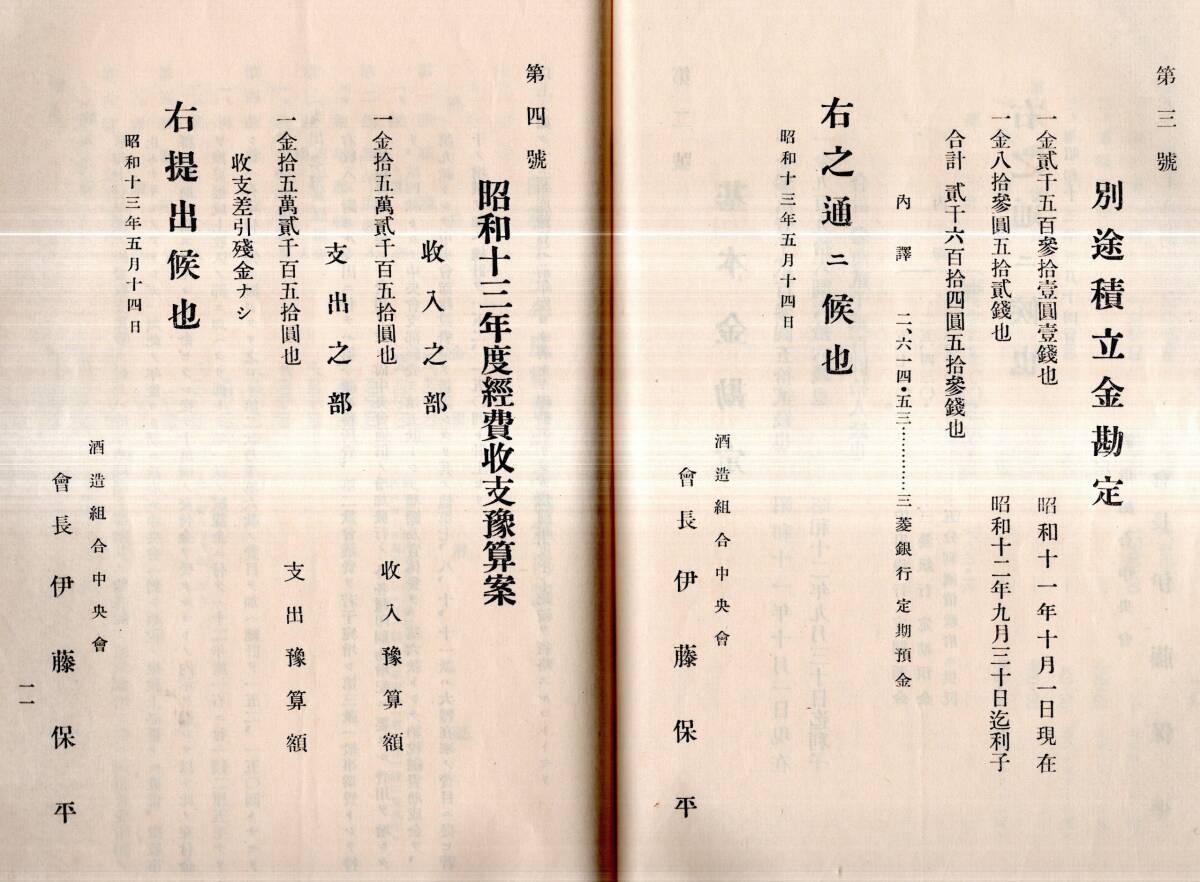 第三號
別途積立金勘定
一金貳千五百參拾壹圓壹錢也 昭和十一年十月一日現在
一金八拾參圓五拾貳錢也 昭和十二年九月三十日迄利子
合計 貳千六百拾四圓五拾參錢也
內譯 二、六一四・五三…………三菱銀行定期預金
右之通ニ候也
昭和十三年五月十四日
酒造組合中央會
會長 伊藤保平
第四號
昭和十三年度經費收支豫算案
收入之部
一金拾五萬貳千百五拾圓也 收入豫算額
支出之部
一金拾五萬貳千百五拾圓也 支出豫算額
收支差引殘金ナシ
右提出候也
昭和十三年五月十四日
酒造組合中央會
會長 伊藤保平
一一